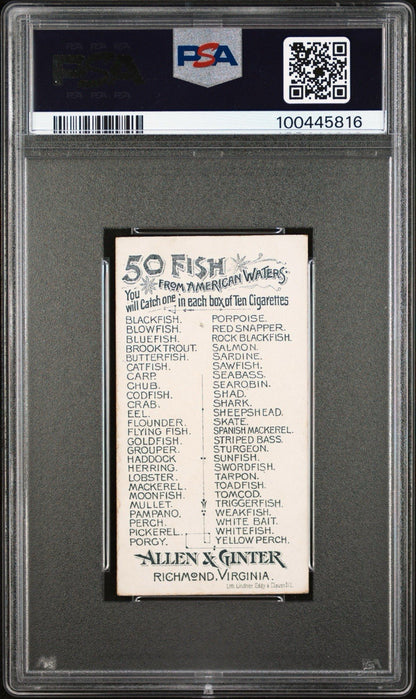 PSA
PSA
100445816
50 FISH
FROM AMERICAN WATERS.
You will Catch one in each box of Ten Cigarettes
BLACKFISH.
BLOWFISH.
BLUEFISH.
BROOK TROUT.
BUTTERFISH.
CATFISH.
CARP.
CHUB.
CODFISH.
CRAB.
EEL.
FLOUNDER.
FLYING FISH.
GOLDFISH.
GROUPER.
HADDOCK
HERRING.
LOBSTER.
MACKEREL.
MOONFISH.
MULLET.
PAMPANO.
PERCH.
PICKEREL.
PORGY.
PORPOISE.
RED SNAPPER.
ROCK BLACKFISH.
SALMON.
SARDINE.
SAWFISH.
SEABASS.
SEAROBIN.
SHAD.
SHARK.
SHEEPSHEAD.
SKATE.
SPANISH MACKEREL.
STRIPED BASS.
STURGEON.
SUNFISH.
SWORDFISH.
TARPON.
TOADFISH.
TOMCOD.
TRIGGERFISH.
WEAKFISH.
WHITE BAIT.
WHITEFISH.
YELLOW PERCH.
ALLEN & GINTER
RICHMOND, VIRGINIA.
Lith. Lindner, Eddy & Clauss N.Y.